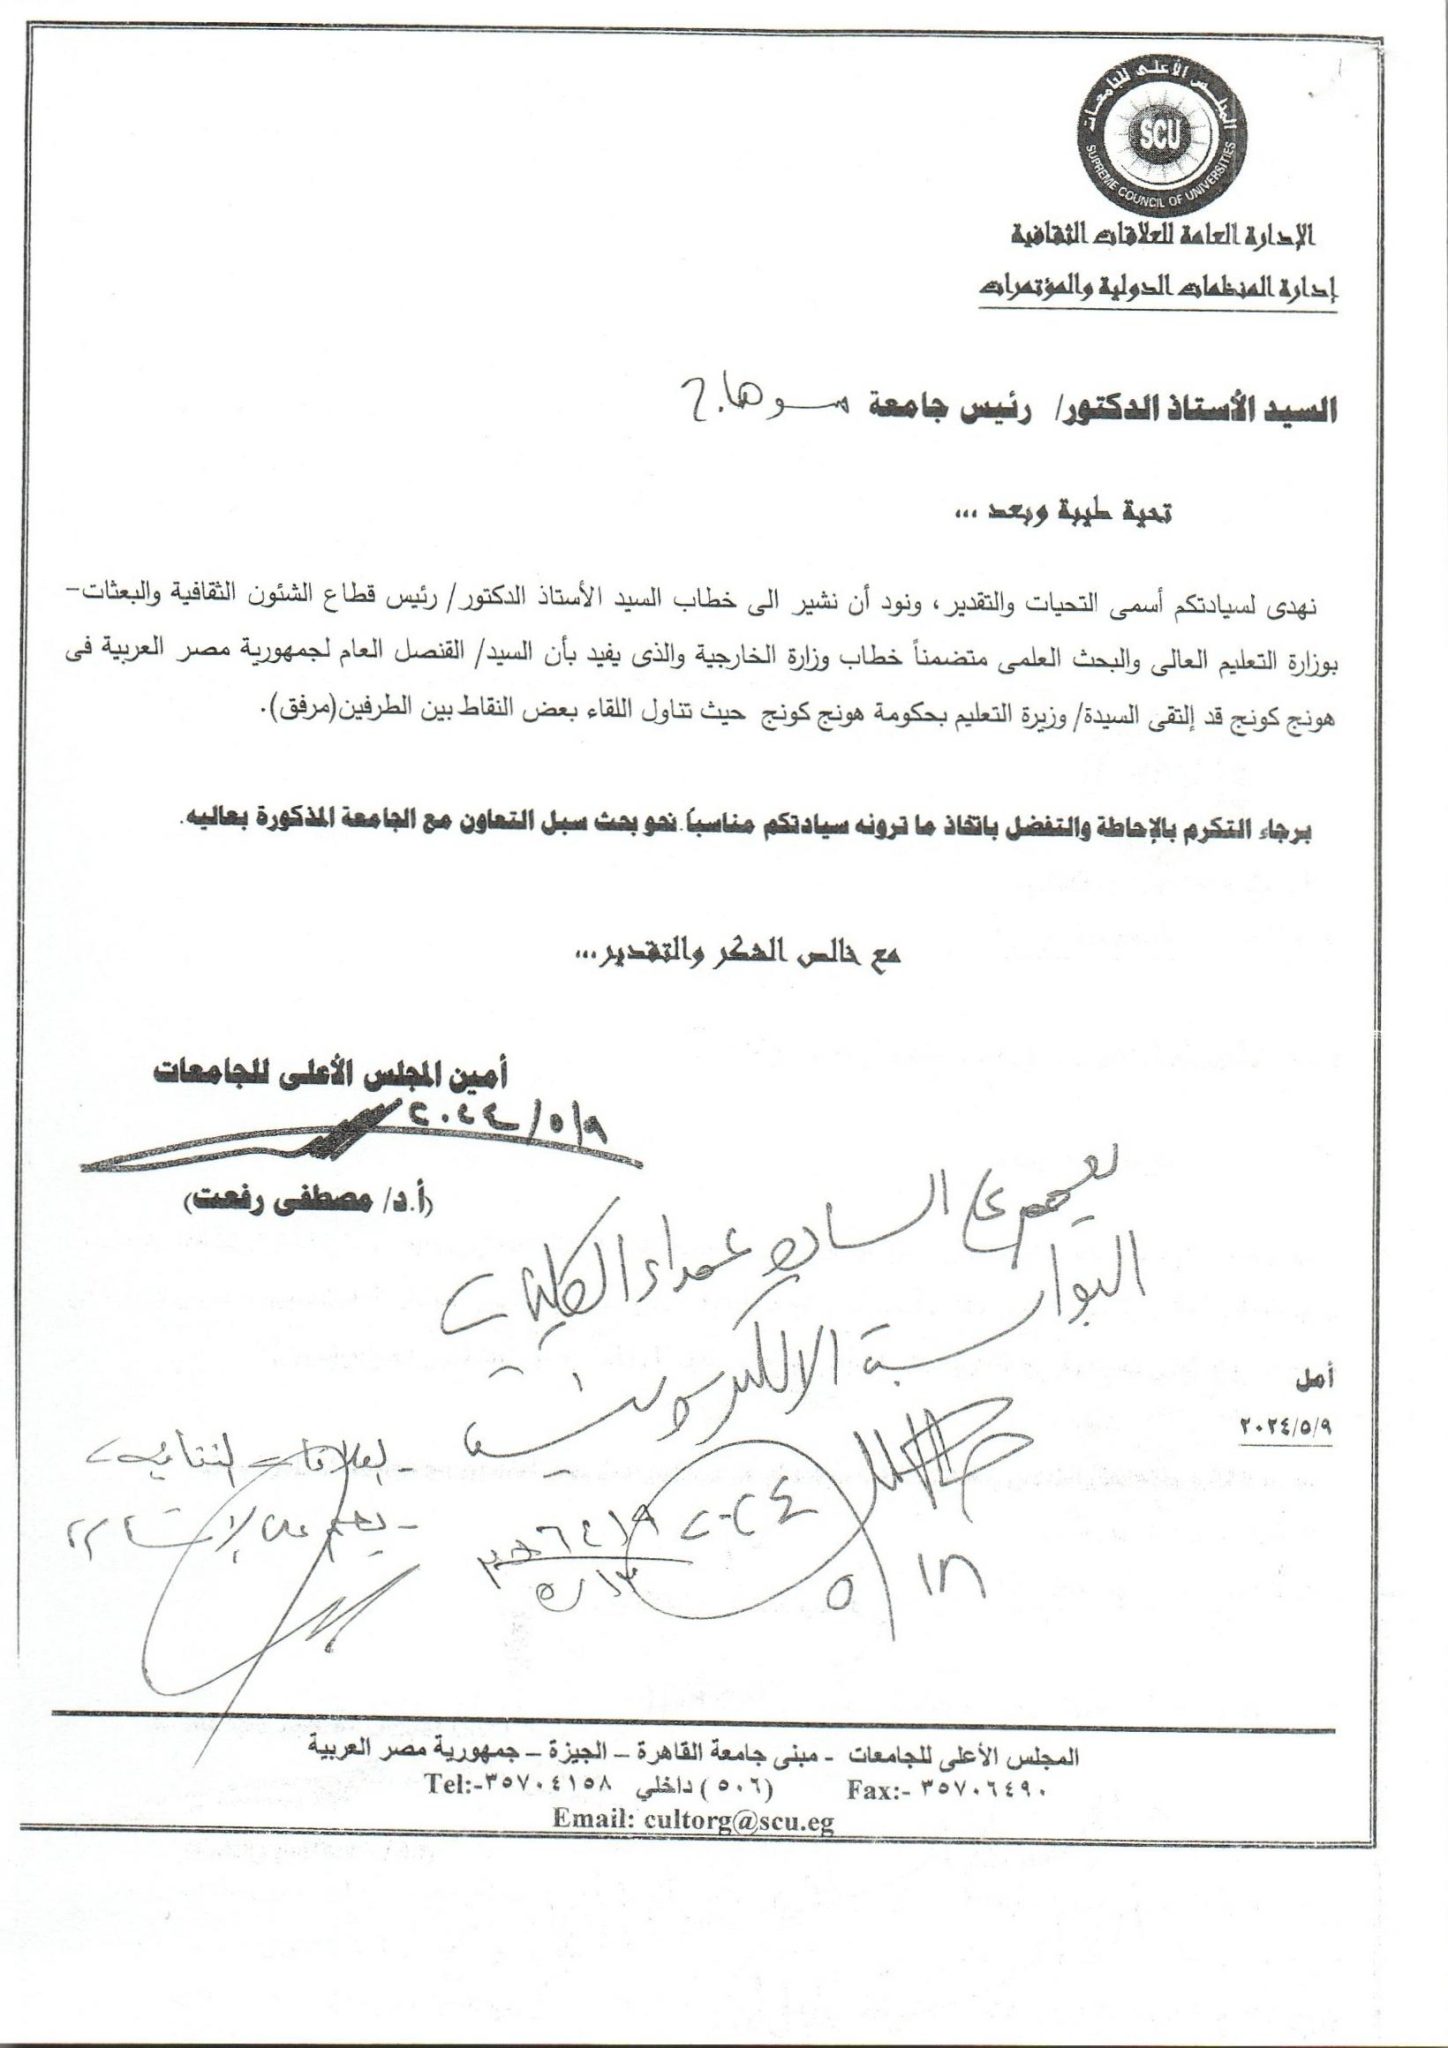 المجلس الأعلى للجامعات
SCU
SUPREME COUNCIL OF UNIVERSITIES
الإدارة العامة للعلاقات الثقافية
إدارة المنظمات الدولية والمؤتمرات
السيد الأستاذ الدكتور/ رئيس جامعة سوهاج
تحية طيبة وبعد ...
نهدى لسيادتكم أسمى التحيات والتقدير، ونود أن نشير الى خطاب السيد الأستاذ الدكتور/ رئيس قطاع الشئون الثقافية والبعثات-
بوزارة التعليم العالى والبحث العلمى متضمناً خطاب وزارة الخارجية والذى يفيد بأن السيد/ القنصل العام لجمهورية مصر العربية فى
هونج كونج قد إلتقى السيدة/ وزيرة التعليم بحكومة هونج كونج حيث تناول اللقاء بعض النقاط بين الطرفين(مرفق).
برجاء التكرم بالإحاطة والتفضل باتخاذ ما ترونه سيادتكم مناسباً.نحو بحث سبل التعاون مع الجامعة المذكورة بعاليه.
مع خالص الشكر والتقدير...
أمين المجلس الأعلى للجامعات
٢٠٢٤/٥/٩
(أ.د/ مصطفى رفعت)
يعمم على السادة عمداء الكليات
البوابة الالكترونية
أمل
٢٠٢٤/٥/٩
- العلاقات الثقافية
٢٠٢٤
٥/١٨
٥/١٣
المجلس الأعلى للجامعات - مبنى جامعة القاهرة – الجيزة – جمهورية مصر العربية
Fax:- ٣٥٧٠٦٤٩٠ (٥٠٦) داخلي Tel:-٣٥٧٠٤١٥٨
Email: cultorg@scu.eg